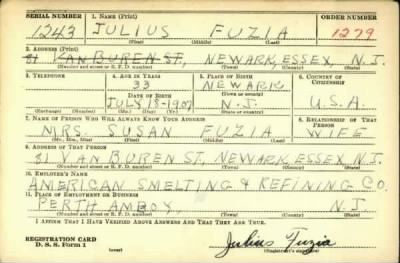 SERIAL NUMBER 1. NAME (Print) ORDER NUMBER
1243 JULIUS FUZIA 1279
(First) (Middle) (Last)
2. ADDRESS (Print)
31 VAN BUREN ST., NEWARK, ESSEX, N.J.
(Number and street or R. F. D. number) (Town) (County) (State)
3. TELEPHONE 4. AGE IN YEARS 5. PLACE OF BIRTH 6. COUNTRY OF CITIZENSHIP
33 NEWARK
DATE OF BIRTH (Town or county)
JULY 18-1907 N.J. U.S.A.
(Exchange) (Number) (Mo.) (Day) (Yr.) (State or country)
7. NAME OF PERSON WHO WILL ALWAYS KNOW YOUR ADDRESS 8. RELATIONSHIP OF THAT PERSON
MRS. SUSAN FUZIA WIFE
(Mr., Mrs., Miss) (First) (Middle) (Last)
9. ADDRESS OF THAT PERSON
31 VAN BUREN ST, NEWARK, ESSEX, N.J.
(Number and street or R. F. D. number) (Town) (County) (State)
10. EMPLOYER'S NAME
AMERICAN SMELTING & REFINING CO.
11. PLACE OF EMPLOYMENT OR BUSINESS
PERTH AMBOY, N.J.
(Number and street or R. F. D. number) (Town) (County) (State)
I AFFIRM THAT I HAVE VERIFIED ABOVE ANSWERS AND THAT THEY ARE TRUE.
REGISTRATION CARD
D. S. S. Form 1 (over) Julius Fuzia
(Signature)